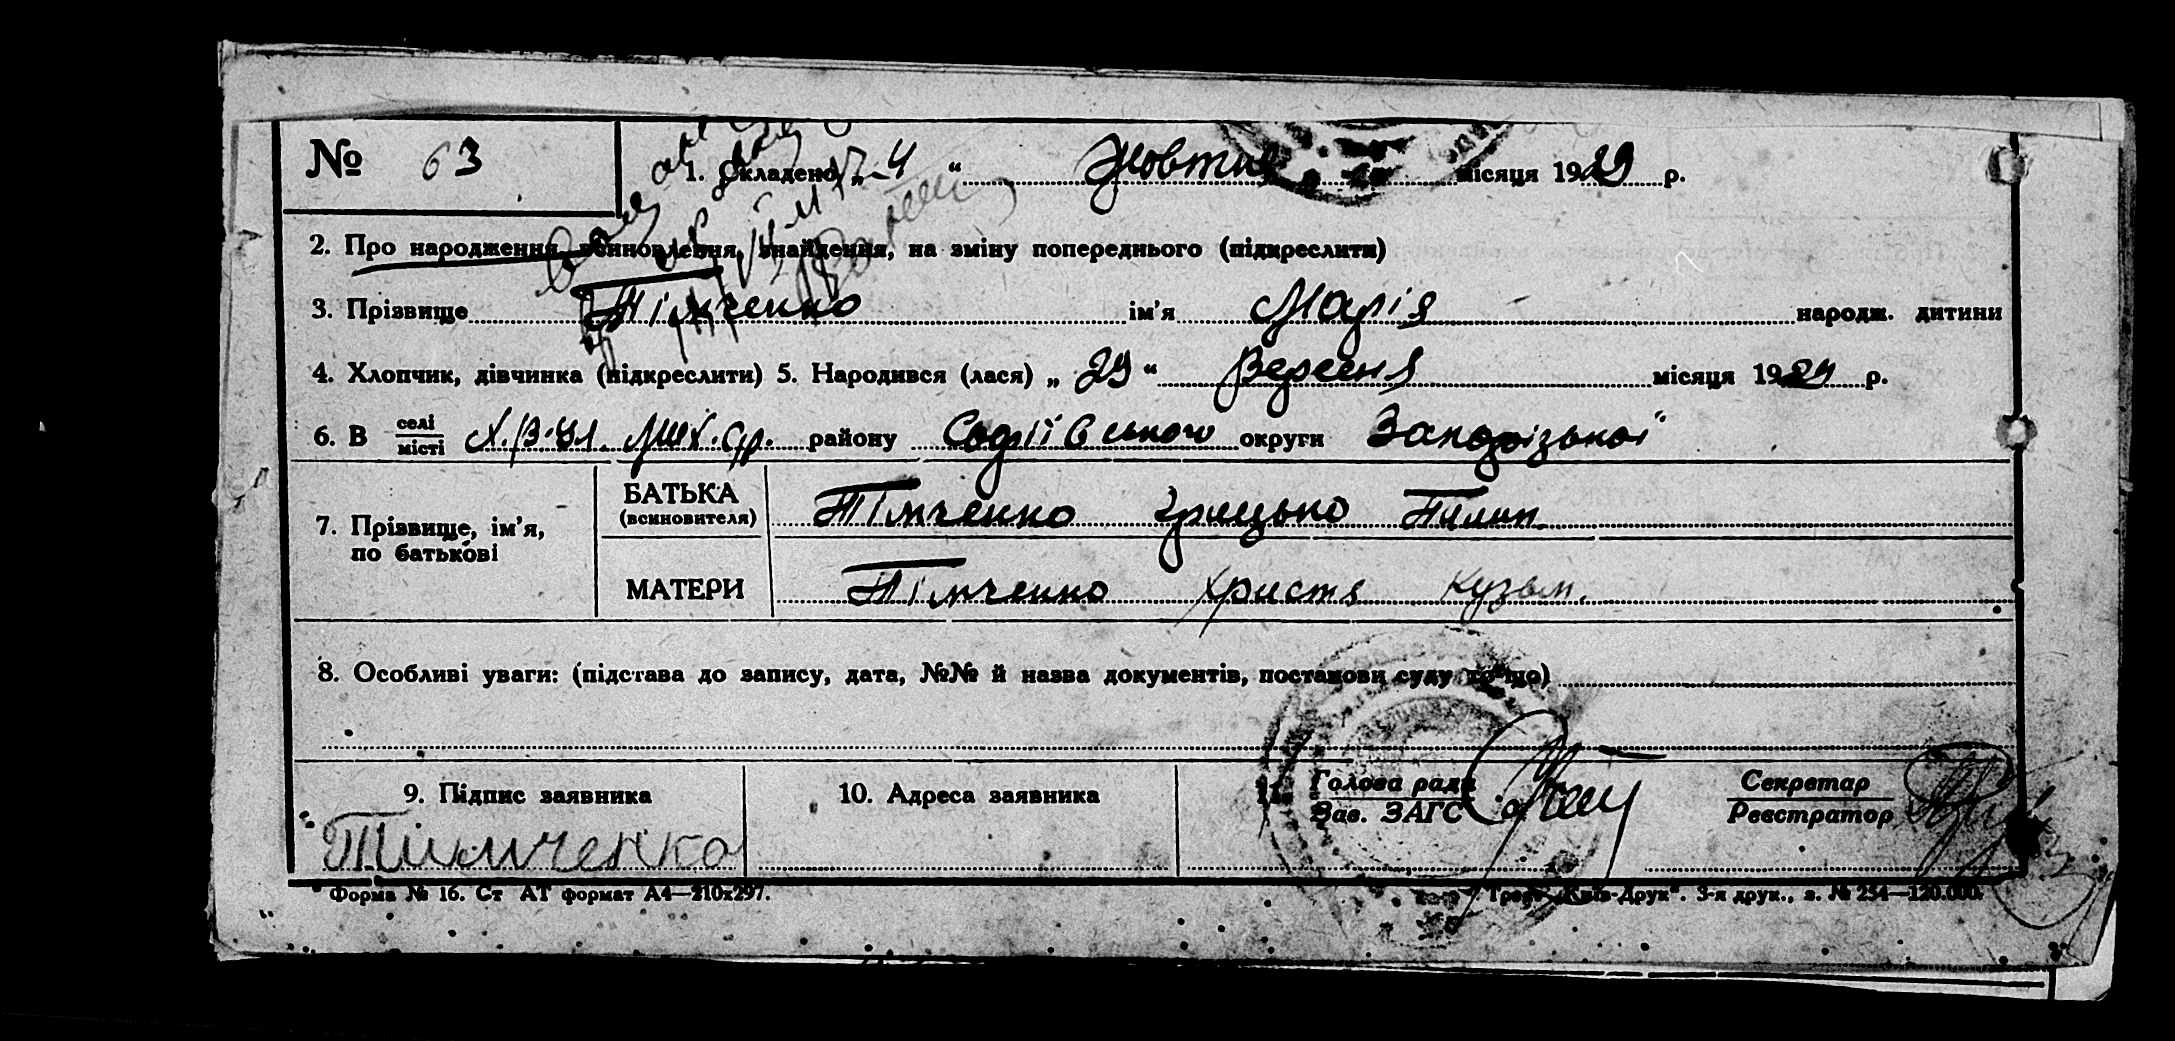 № 63
1. Складено „ 4 “ Жовтня місяця 1929 р.
2. Про народження, всиновлення, знайдення, на зміну попереднього (підкреслити)
3. Прізвище Тімченко ім’я Марія народж. дитини
4. Хлопчик, дівчинка (підкреслити) 5. Народився (лася) „ 29 “ Вересня місяця 1929 р.
6. В селі місті району Софіївського округи Запорізької
7. Прізвище, ім’я, по батькові
БАТЬКА (всиновителя) Тімченко Грицько Пилип.
МАТЕРИ Тімченко Христя Кузьм.
8. Особливі уваги: (підстава до запису, дата, №№ й назва документів, постанови суду то що)
9. Підпис заявника
Тимченко
10. Адреса заявника
11. Голова ради
Зав. ЗАГС
Секретар
Реєстратор
Форма № 16. Ст АТ формат А4—210х297.
Трест „Київ-Друк“. 3-я друк., з. № 254—120.000.